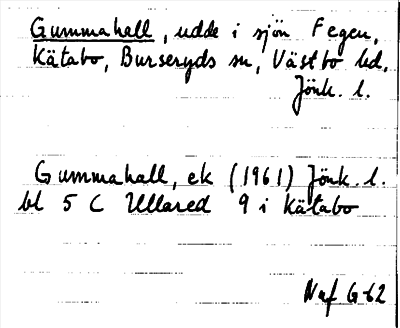 Gummahall, udde i sjön Fegen,
Kätabo, Burseryds sn, Västbo hd,
Jönk. l.
Gummahall, ek (1961) Jönk. l.
bl 5 C Ullared 9 i Kätabo
Naf G-62